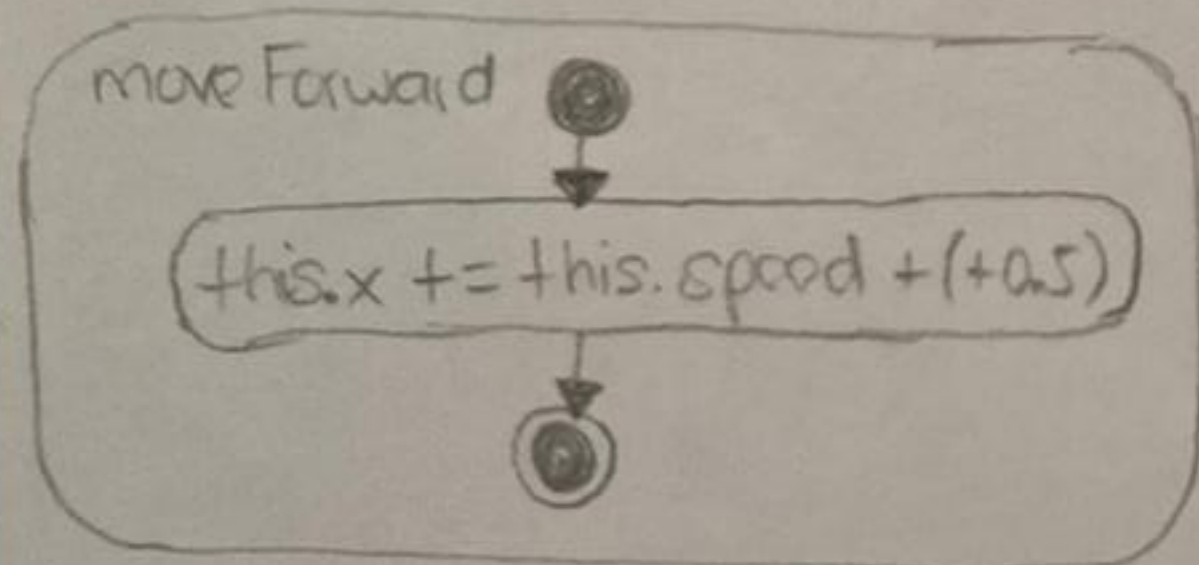 moveForward
this.x += this.speed +(+0.5)